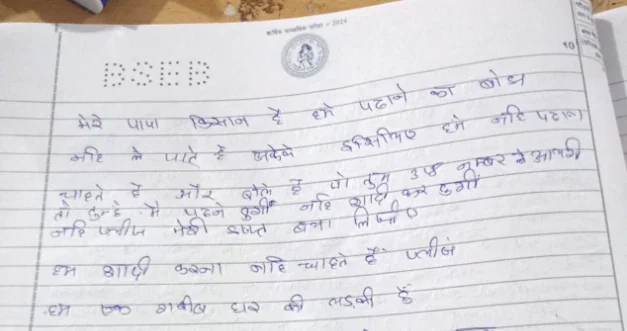 वार्षिक माध्यमिक परीक्षा - 2024
BSEB
10
मेरे पापा किसान है हमे पढाने का बोध
नहि ले पाते है इसिलिए हमे नहि पढाना
चाहते है और बोले है जो तुम उच्च नम्बर से आयगी
तो तुम्हे मै पढने दुगीं नहि शादी कर दुगीं
नहि प्लीज मेरी इज्जत बचा लिजीए
हम शादी करना नहि चाहते हैं प्लीजं
हम एक गरीब घर की लड़की हैं